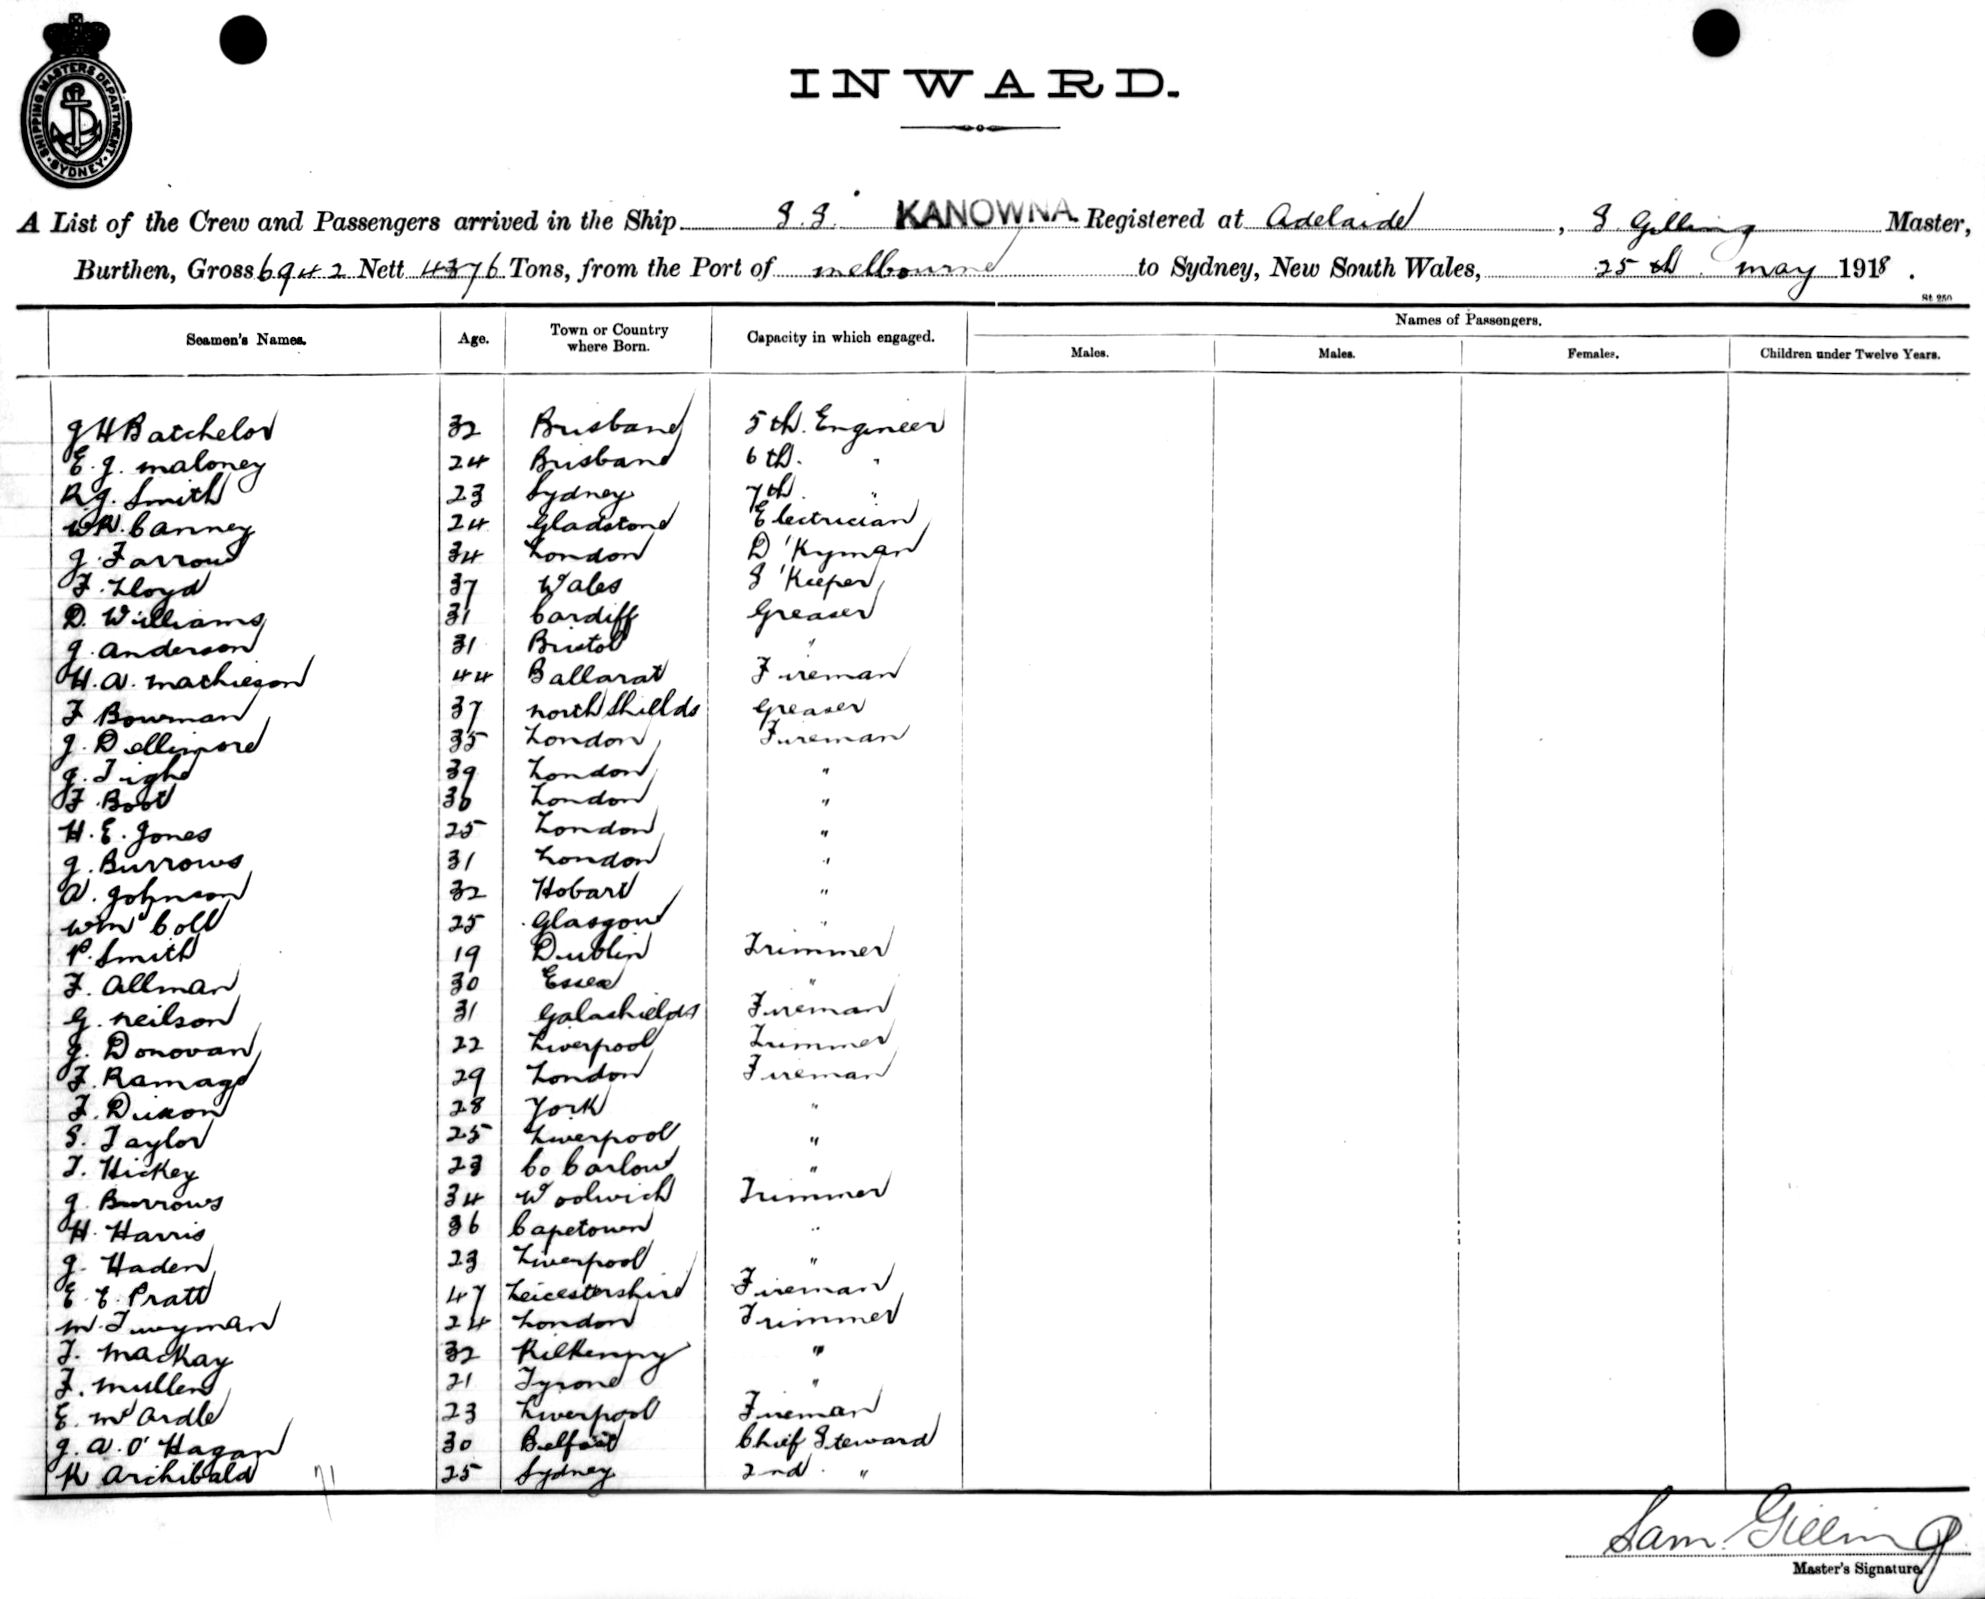 SHIPPING MASTERS DEPARTMENT · SYDNEY ·
INWARD.
A List of the Crew and Passengers arrived in the Ship S.S. KANOWNA. Registered at Adelaide, S Gilling Master,
Burthen, Gross 6942 Nett 4376 Tons, from the Port of Melbourne to Sydney, New South Wales, 25th May 1918.
St 250
Seamen's Names. Age. Town or Country where Born. Capacity in which engaged. Names of Passengers.
Males. Males. Females. Children under Twelve Years.
J H Batchelor 32 Brisbane 5th Engineer
E. J. Maloney 24 Brisbane 6th. "
R J. Smith 23 Sydney 7th. "
W R. Canney 24 Gladstone Electrician
J. Farrow 34 London D'Kyman
F. Lloyd 37 Wales S'Keeper
D. Williams 31 Cardiff Greaser
J. Anderson 31 Bristol "
H. A. Mathieson 44 Ballarat Fireman
F Bowman 37 North Shields Greaser
J. Dellimore 35 London Fireman
J. Tighe 39 London "
F. Boot 30 London "
H. E. Jones 25 London "
J. Burrows 31 London "
A. Johnson 32 Hobart "
Wm Coll 25 Glasgow "
P. Smith 19 Dublin Trimmer
F. Allman 30 Essex "
G. Neilson 31 Galashields Fireman
J. Donovan 22 Liverpool Trimmer
F. Ramage 29 London Fireman
F. Dixon 28 York "
S. Taylor 25 Liverpool "
T. Hickey 23 Co Carlow "
J. Burrows 34 Woolwich Trimmer
H. Harris 36 Capetown "
J. Haden 23 Liverpool "
E. E. Pratt 47 Leicestershire Fireman
M. Twyman 24 London Trimmer
T. MacKay 32 Kilkenny "
F. Mullen 21 Tyrone "
E. McArdle 23 Liverpool Fireman
J. A. O'Hagan 30 Belfast Chief Steward
K Archibald 25 Sydney 2nd. "
Sam. Gilling
Master's Signature.